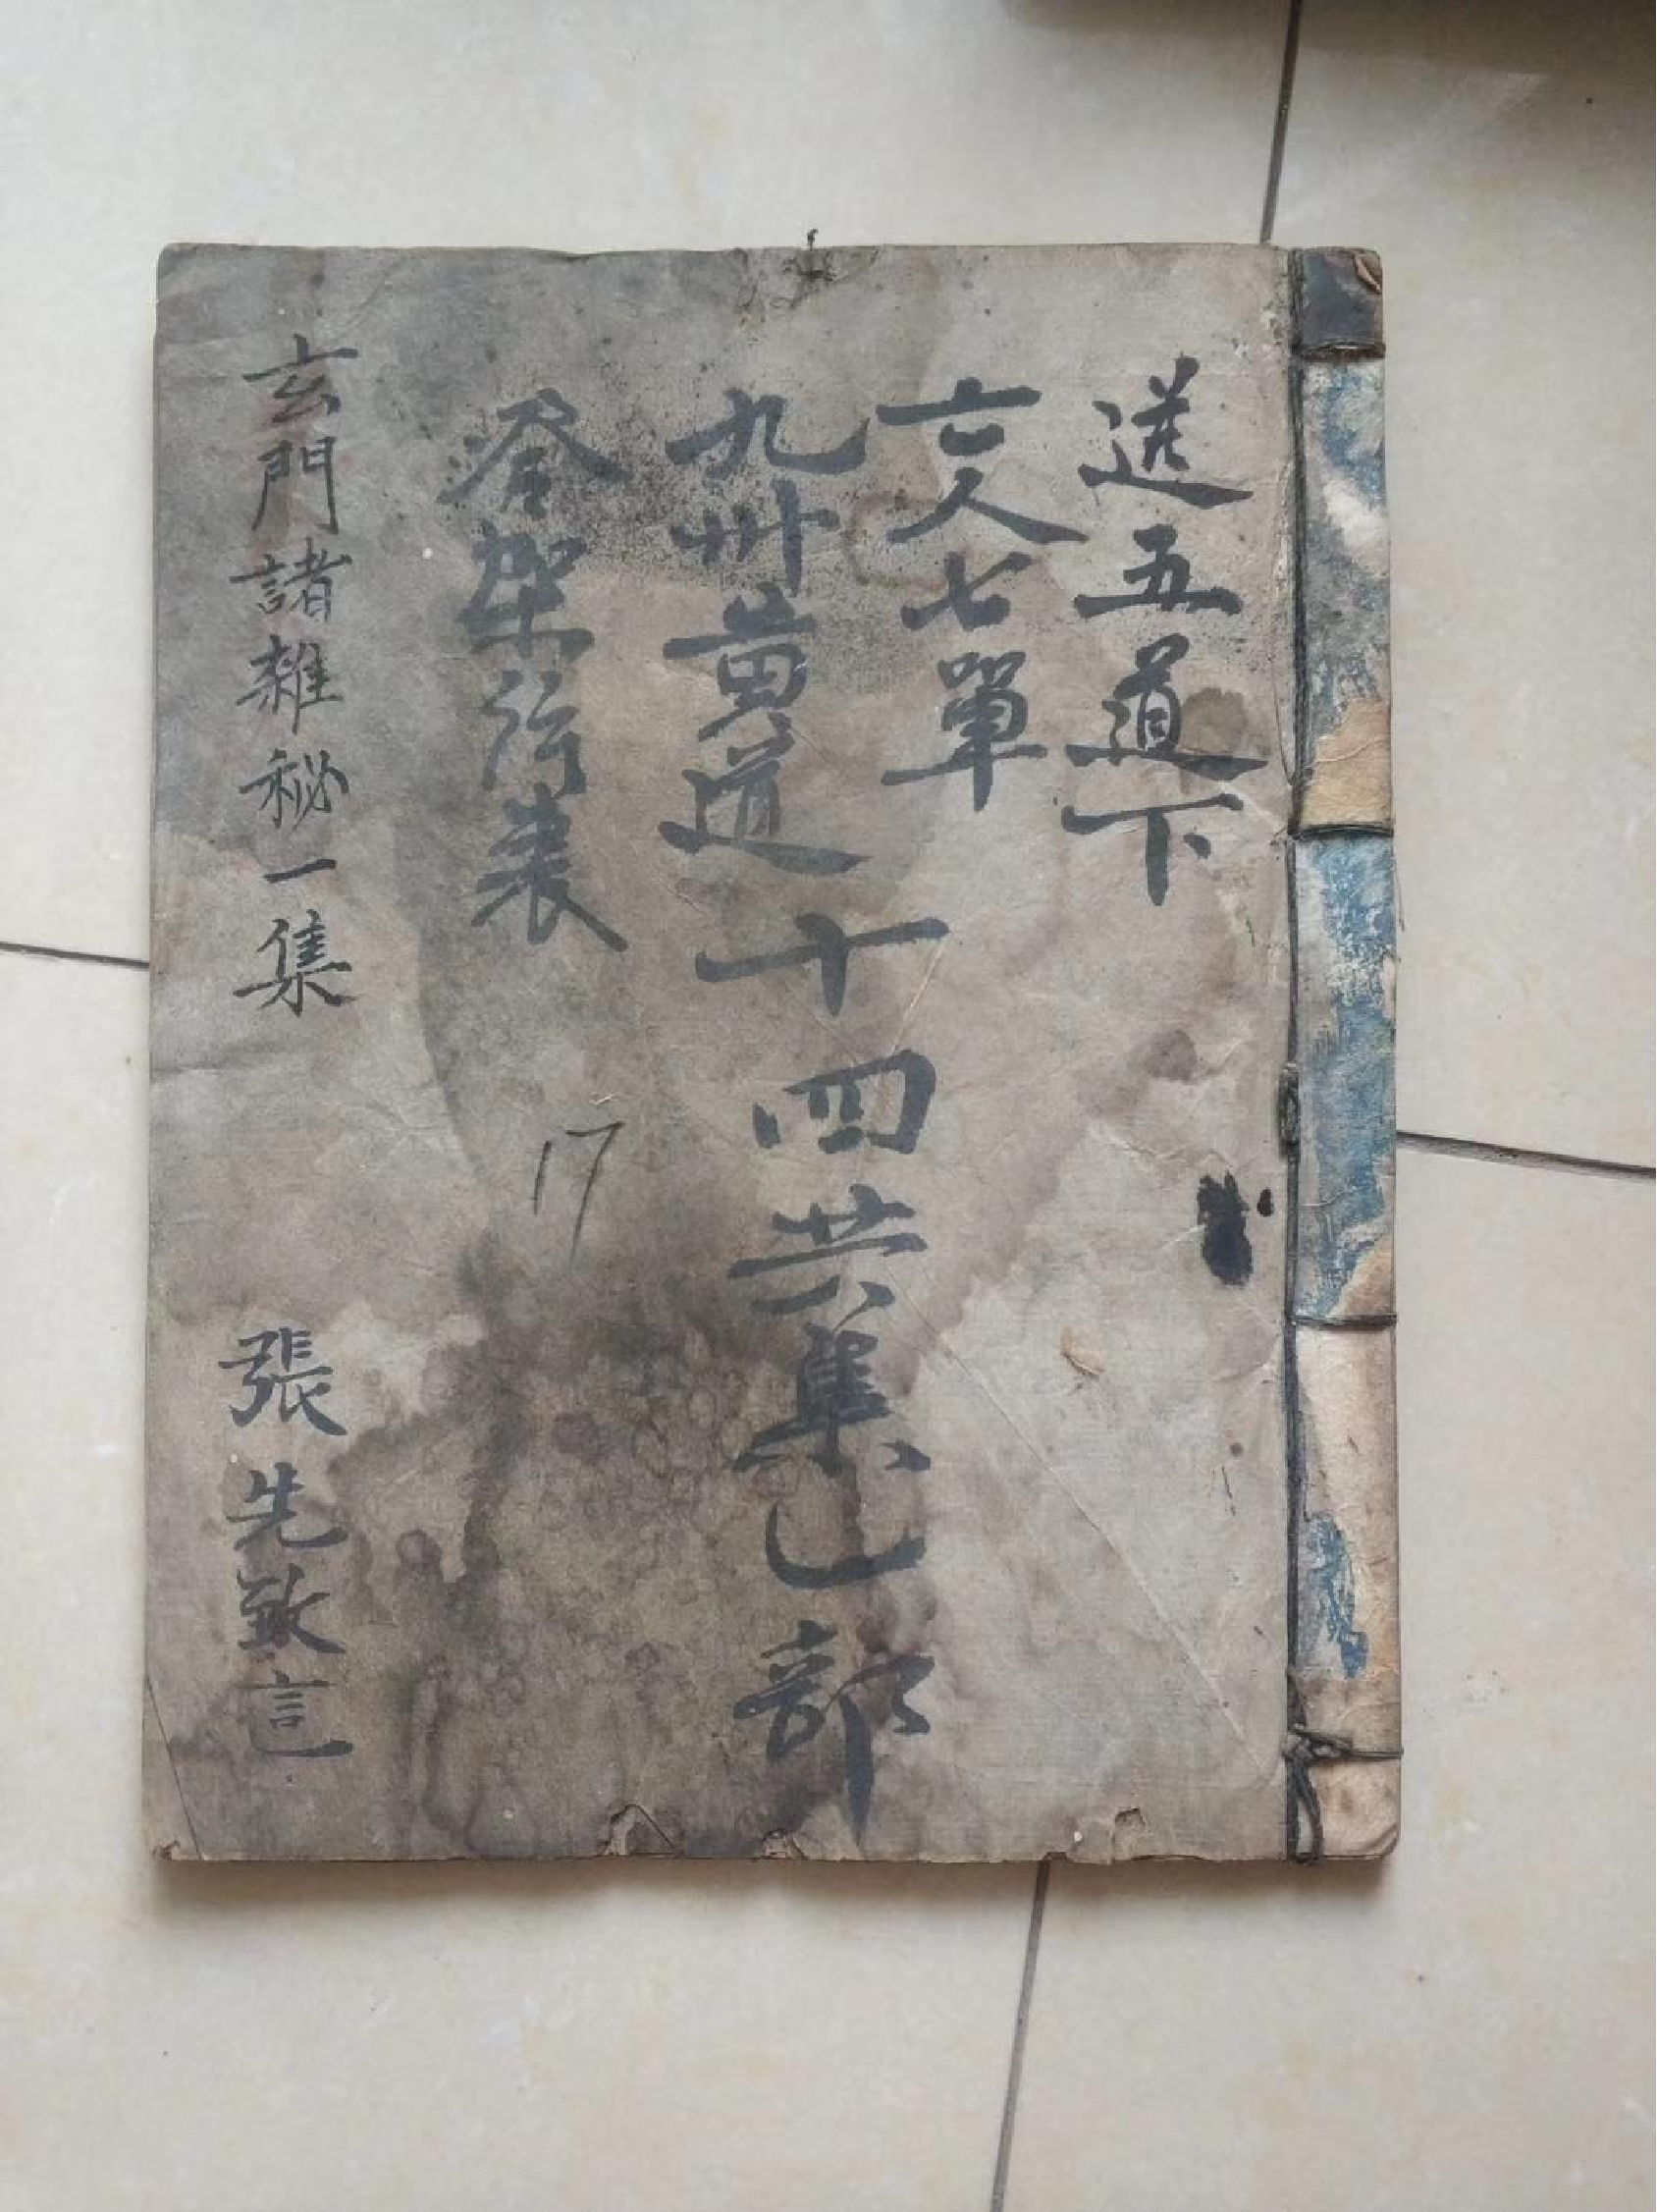 送五道下
六人七單
九州黄道十四共集一部
架
17
玄門諸雜秘一集 張先致言